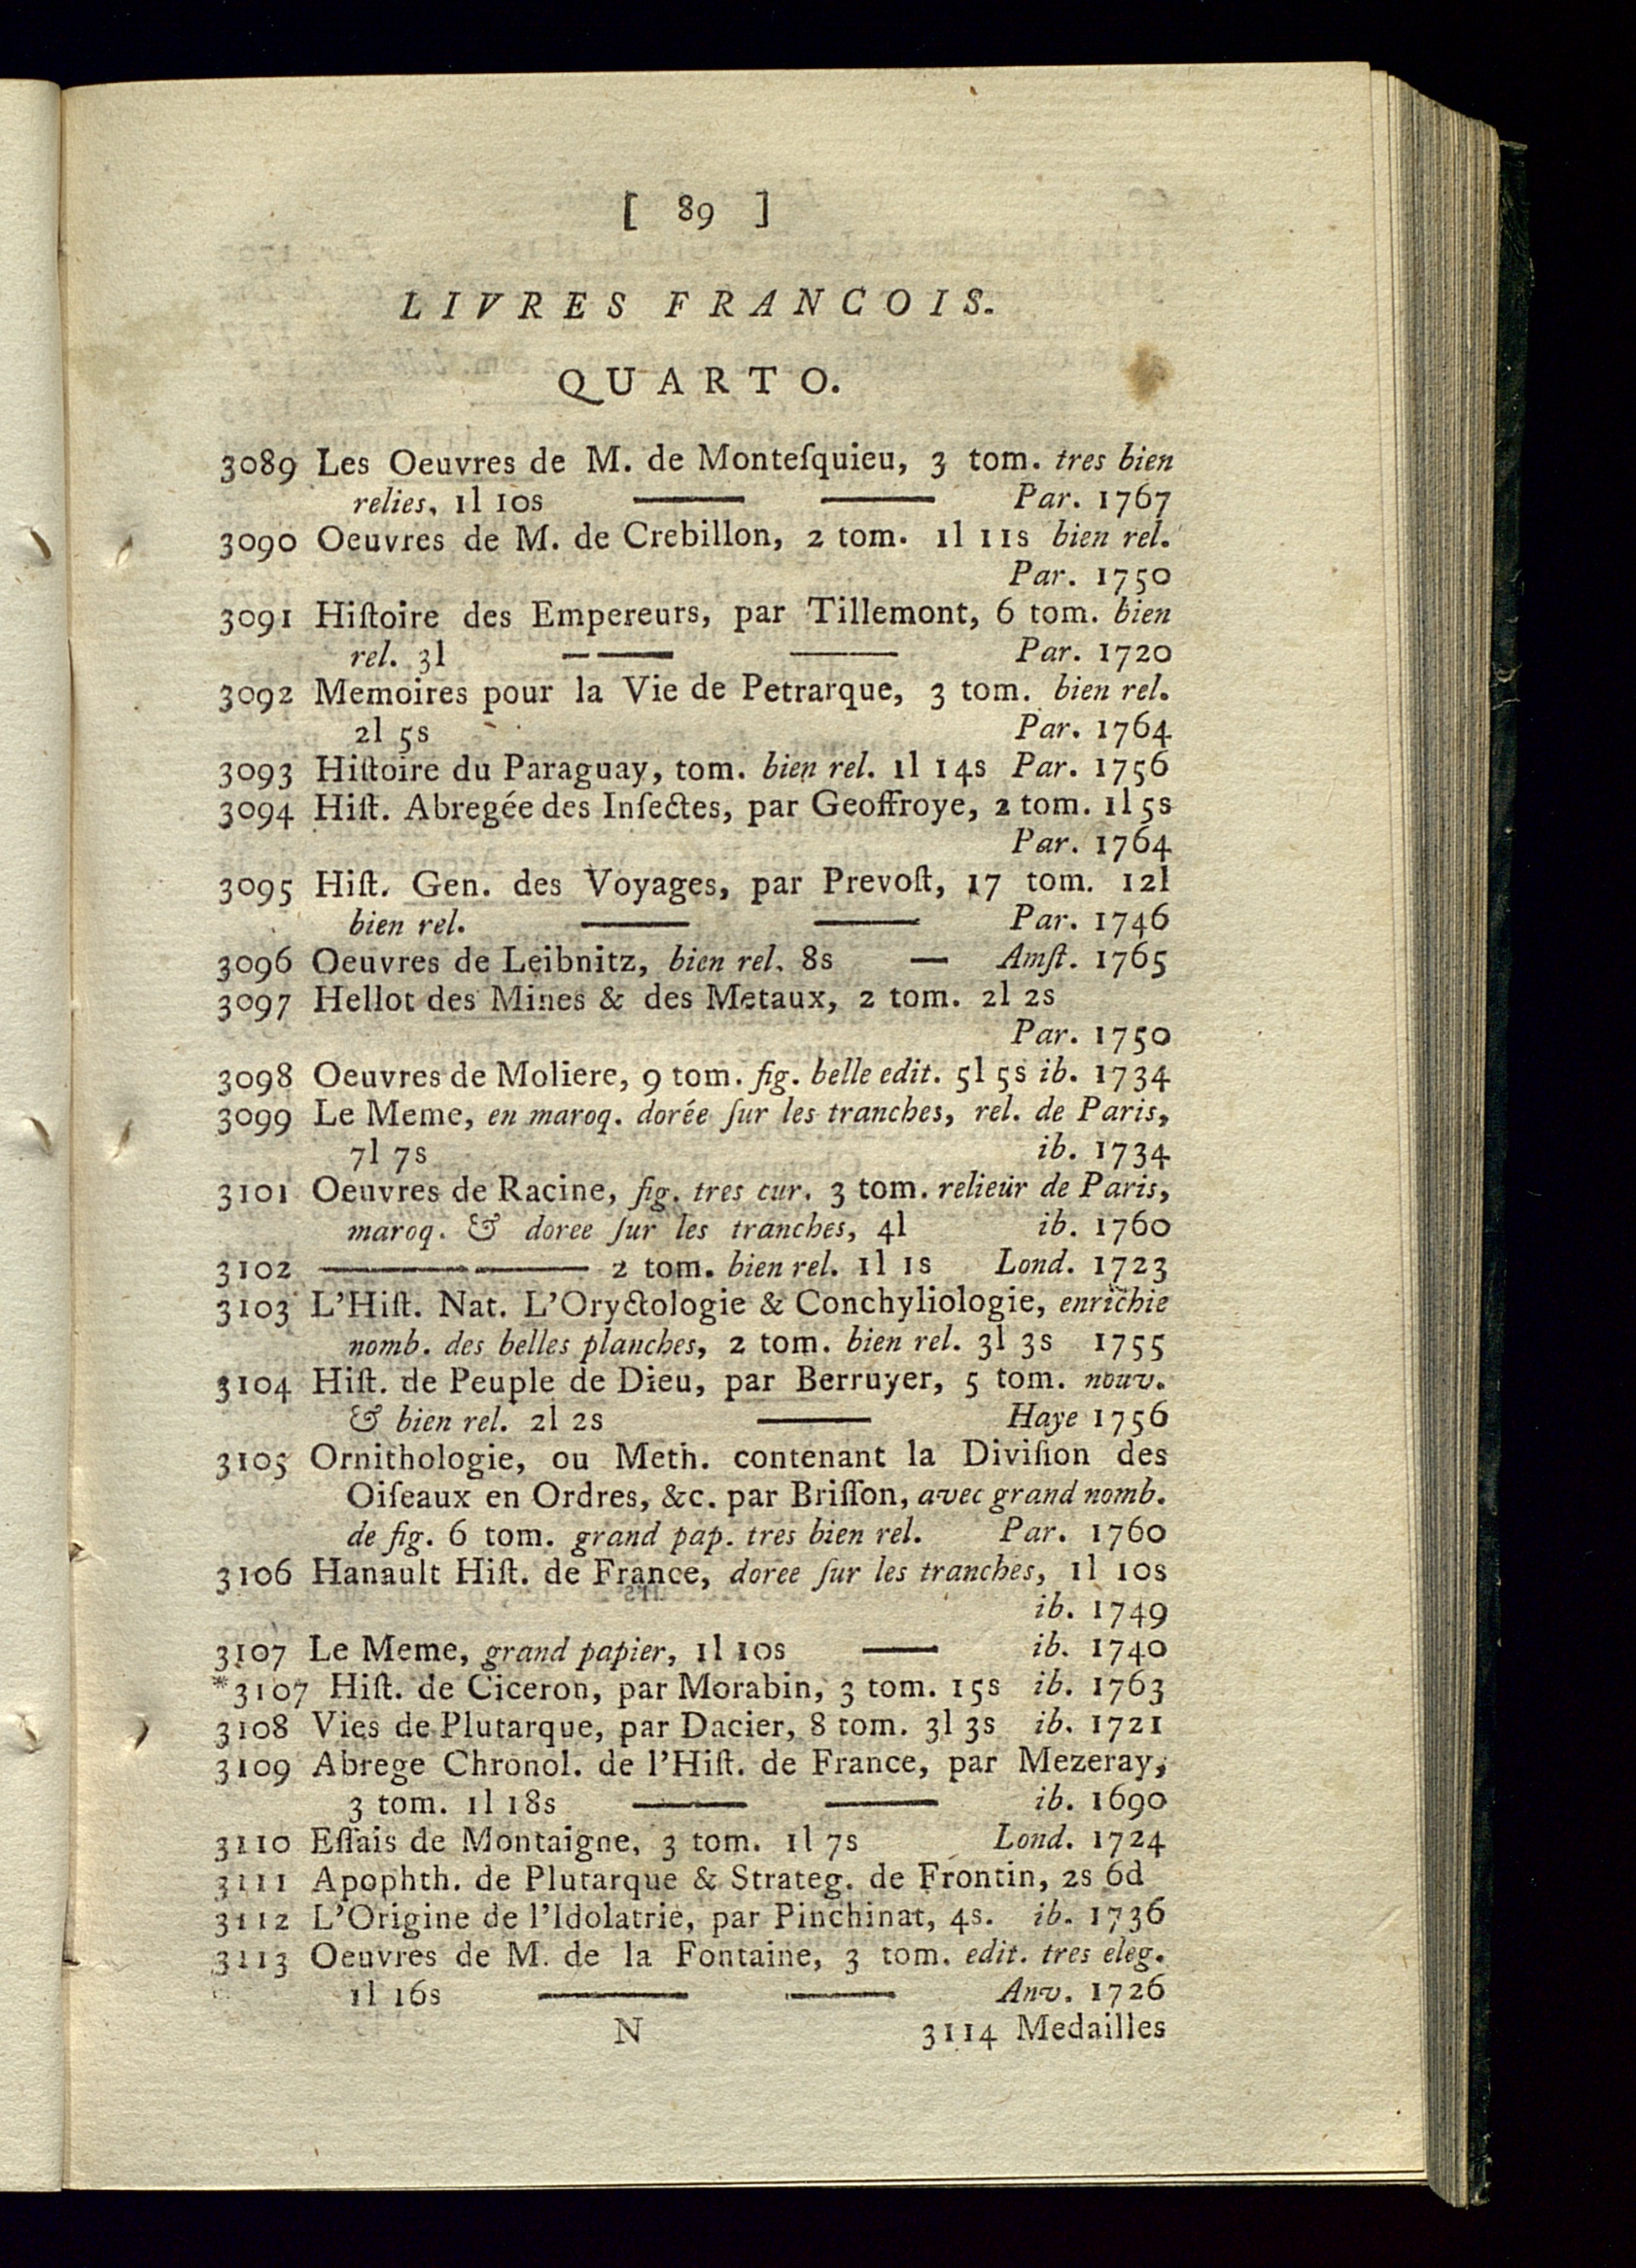 [ 89 ]
LIVRES FRANCOIS.
QUARTO.
3089 Les Oeuvres de M. de Monteſquieu, 3 tom. tres bien
relies, 1l 10s —— —— Par. 1767
3090 Oeuvres de M. de Crebillon, 2 tom. 1l 11s bien rel.
Par. 1750
3091 Hiſtoire des Empereurs, par Tillemont, 6 tom. bien
rel. 3l —— —— Par. 1720
3092 Memoires pour la Vie de Petrarque, 3 tom. bien rel.
2l 5s Par. 1764
3093 Hiſtoire du Paraguay, tom. bien rel. 1l 14s Par. 1756
3094 Hiſt. Abregée des Inſectes, par Geoffroye, 2 tom. 1l 5s
Par. 1764
3095 Hiſt. Gen. des Voyages, par Prevoſt, 17 tom. 12l
bien rel. —— —— Par. 1746
3096 Oeuvres de Leibnitz, bien rel. 8s — Amſt. 1765
3097 Hellot des Mines & des Metaux, 2 tom. 2l 2s
Par. 1750
3098 Oeuvres de Moliere, 9 tom. fig. belle edit. 5l 5s ib. 1734
3099 Le Meme, en maroq. dorée ſur les tranches, rel. de Paris,
7l 7s ib. 1734
3101 Oeuvres de Racine, fig. tres cur. 3 tom. relieur de Paris,
maroq. & doree ſur les tranches, 4l ib. 1760
3102 ———— 2 tom. bien rel. 1l 1s Lond. 1723
3103 L'Hiſt. Nat. L'Oryctologie & Conchyliologie, enrichie
nomb. des belles planches, 2 tom. bien rel. 3l 3s 1755
3104 Hiſt. de Peuple de Dieu, par Berruyer, 5 tom. nouv.
& bien rel. 2l 2s —— Haye 1756
3105 Ornithologie, ou Meth. contenant la Diviſion des
Oiſeaux en Ordres, &c. par Briſſon, avec grand nomb.
de fig. 6 tom. grand pap. tres bien rel. Par. 1760
3106 Hanault Hiſt. de France, doree ſur les tranches, 1l 10s
ib. 1749
3107 Le Meme, grand papier, 1l 10s —— ib. 1740
*3107 Hiſt. de Ciceron, par Morabin, 3 tom. 15s ib. 1763
3108 Vies de Plutarque, par Dacier, 8 tom. 3l 3s ib. 1721
3109 Abrege Chronol. de l'Hiſt. de France, par Mezeray,
3 tom. 1l 18s —— —— ib. 1690
3110 Eſſais de Montaigne, 3 tom. 1l 7s Lond. 1724
3111 Apophth. de Plutarque & Strateg. de Frontin, 2s 6d
3112 L'Origine de l'Idolatrie, par Pinchinat, 4s. ib. 1736
3113 Oeuvres de M. de la Fontaine, 3 tom. edit. tres eleg.
1l 16s —— —— Anv. 1726
N 3114 Medailles